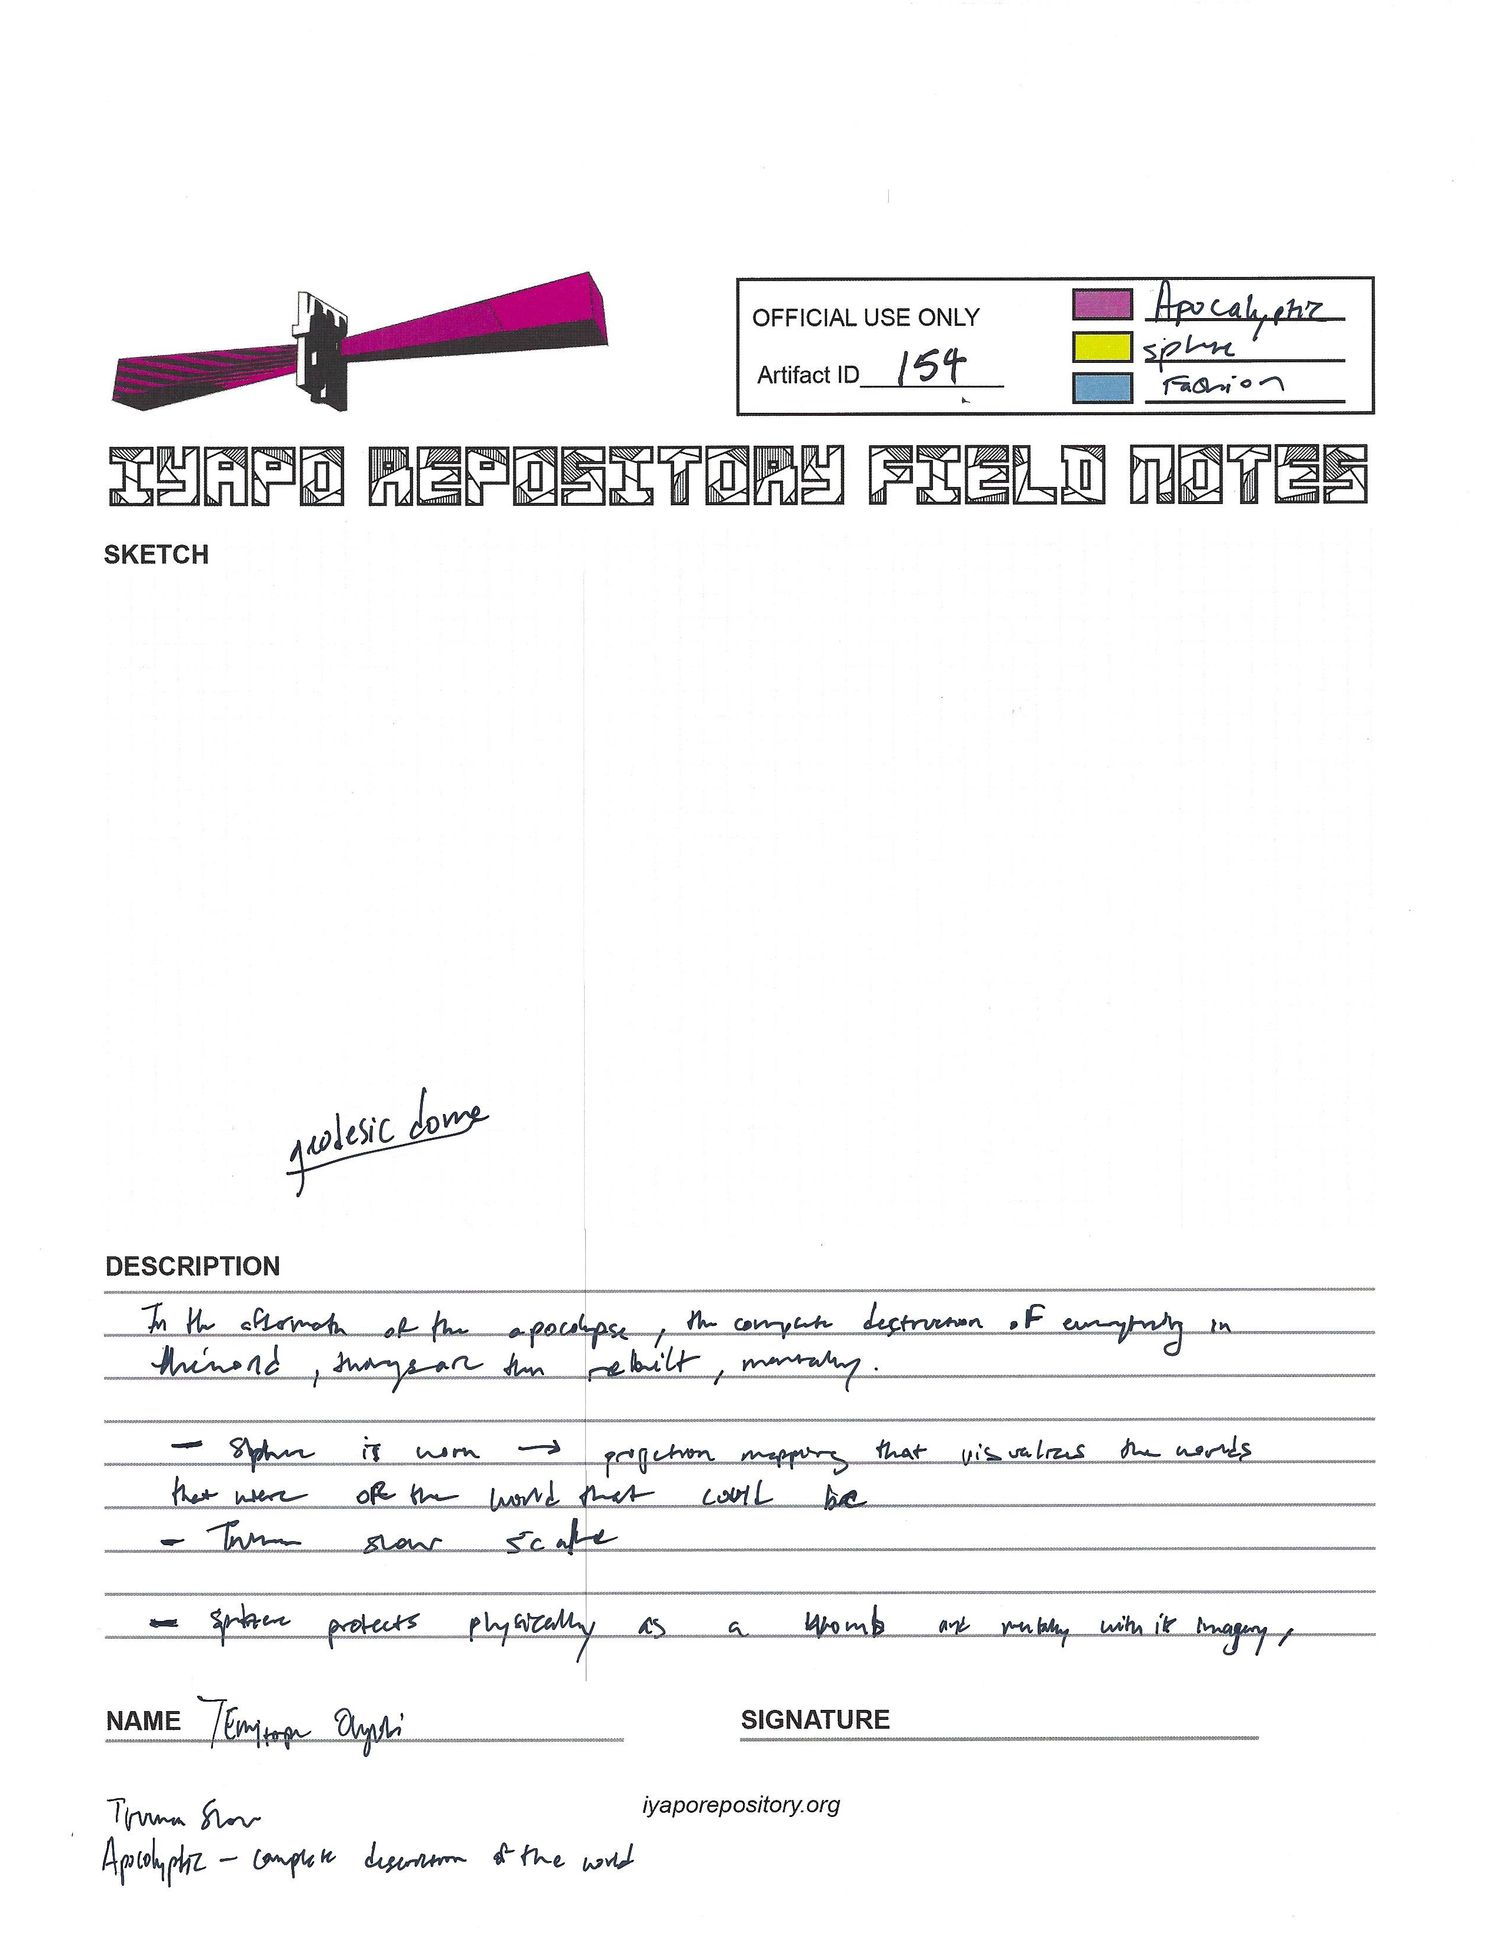 OFFICIAL USE ONLY
Artifact ID 154
Apocalyptic
sphere
Fashion
IYAPO REPOSITORY FIELD NOTES
SKETCH
geodesic dome
DESCRIPTION
In the aftermath of the apocalypse, the complete destruction of everything in
the world, things are then rebuilt, mentally.
- Sphere is worn → projection mapping that visualizes the worlds
that were or the world that could be
- Truman show scale
- sphere protects physically as a womb and mentally with its imagery,
NAME Temitope
SIGNATURE
Truman Show
iyaporepository.org
Apocalyptic - complete destruction of the world